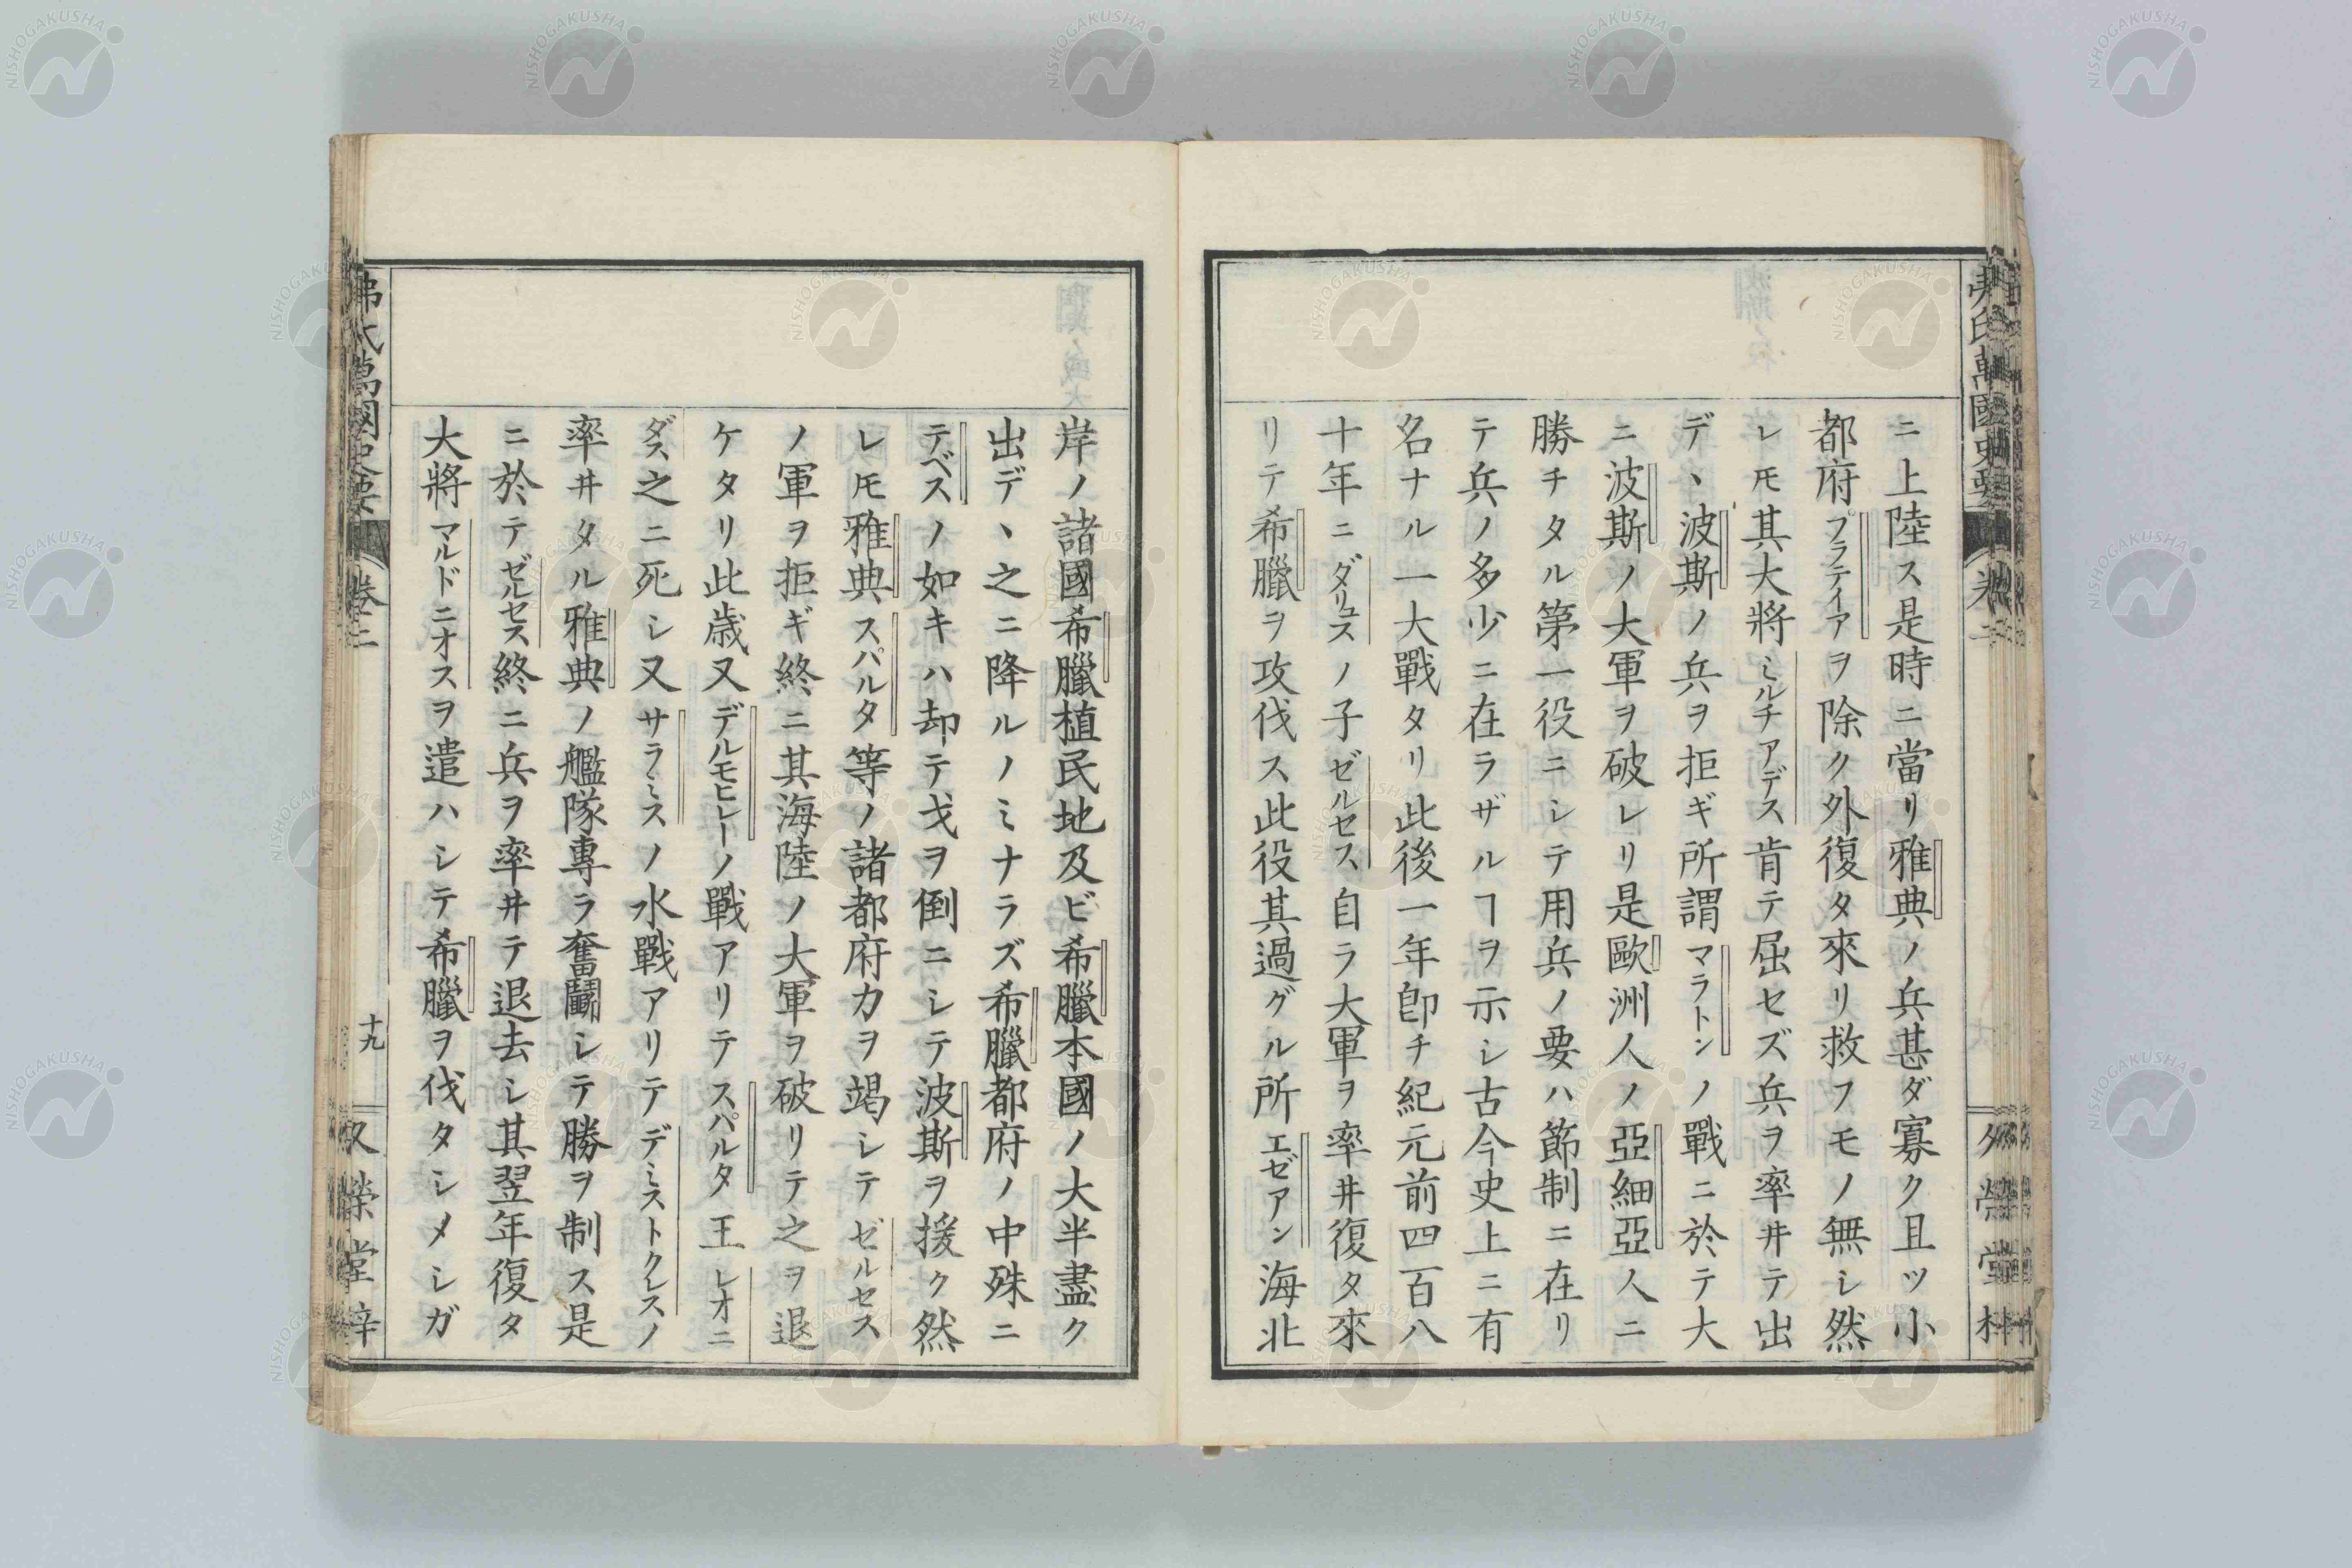 ニ上陸ス是時ニ當リ雅典ノ兵甚ダ寡ク且ツ小
都府プラテイアヲ除ク外復タ來リ救フモノ無シ然
レ𪜈其大將ミルチアデス肯テ屈セズ兵ヲ率井テ出
デヽ波斯ノ兵ヲ拒ギ所謂マラトンノ戰ニ於テ大
ニ波斯ノ大軍ヲ破レリ是歐洲人ノ亞細亞人ニ
勝チタル第一役ニシテ用兵ノ要ハ節制ニ在リ
テ兵ノ多少ニ在ラザルヿヲ示シ古今史上ニ有
名ナル一大戰タリ此後一年卽チ紀元前四百八
十年ニダリユスノ子ゼルセス自ラ大軍ヲ率井復タ來
リテ希臘ヲ攻伐ス此役其過グル所エゼアン海北
岸ノ諸國希臘植民地及ビ希臘本國ノ大半盡ク
出デヽ之ニ降ルノミナラズ希臘都府ノ中殊ニ
テベスノ如キハ却テ戈ヲ倒ニシテ波斯ヲ援ク然
レ𪜈雅典スパルタ等ノ諸都府力ヲ竭シテゼルセス
ノ軍ヲ拒ギ終ニ其海陸ノ大軍ヲ破リテ之ヲ退
ケタリ此歳又デルモヒレーノ戰アリテスパルタ王レオニ
ダス之ニ死シ又サラミスノ水戰アリテデミストクレスノ
率井タル雅典ノ艦隊專ラ奮鬪シテ勝ヲ制ス是
ニ於テゼルセス終ニ兵ヲ率井テ退去シ其翌年復タ
大將マルドニオスヲ遣ハシテ希臘ヲ伐タシメシガ
弗氏萬國史要
卷二
十九
NISHOGAKUSHA